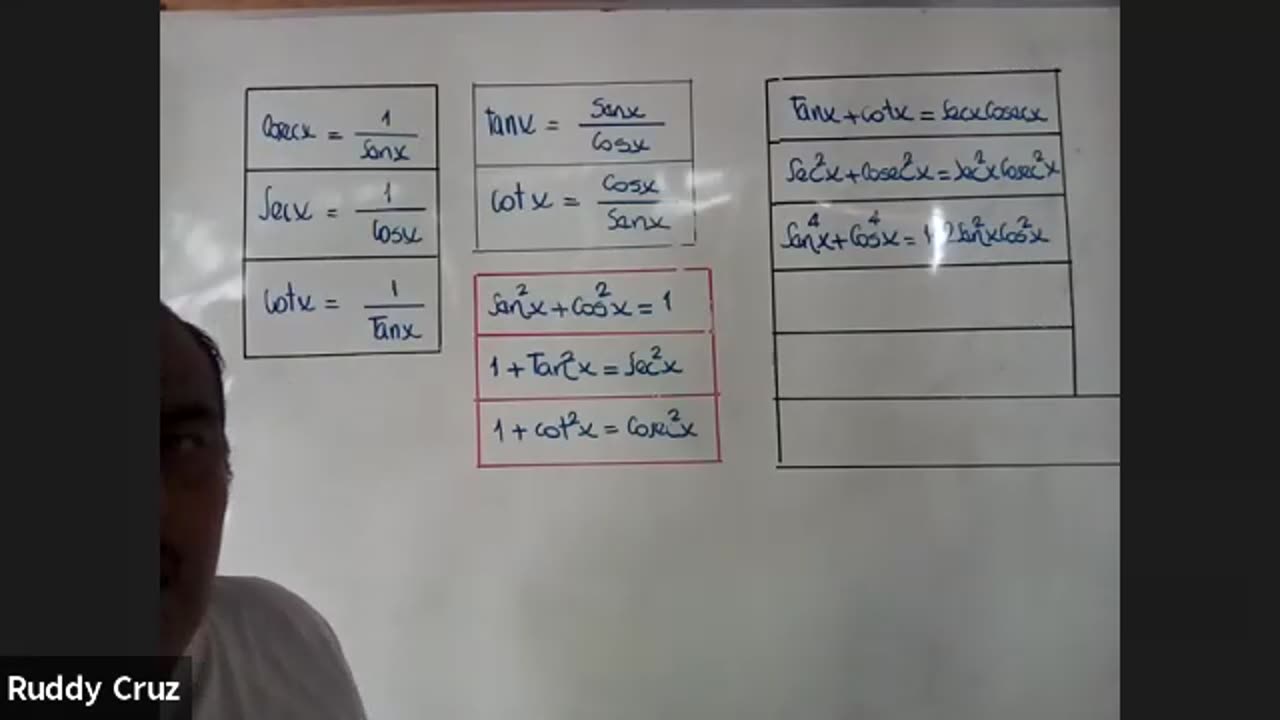 Cosecx = 1/Senx
Secx = 1/Cosx
Cotx = 1/Tanx
Tanx = Senx/Cosx
Cotx = Cosx/Senx
Sen²x + Cos²x = 1
1 + Tan²x = Sec²x
1 + cot²x = Cosec²x
Tanx + Cotx = SecxCosecx
Sec²x + Cosec²x = Sec²xCosec²x
Sen⁴x + Cos⁴x = 1 2Sen²xCos²x
Ruddy Cruz